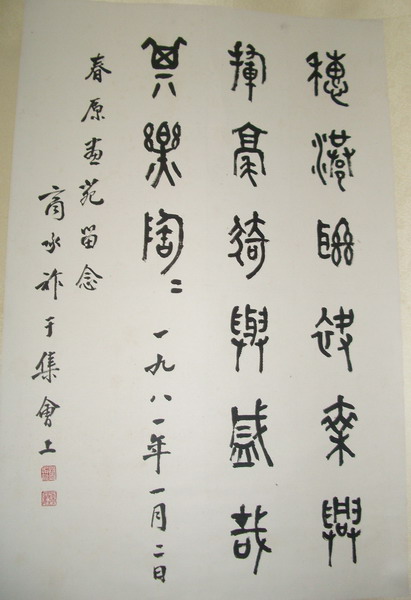 穗港臨乘興
揮毫猗與盛哉
其樂陶〻一九八一年一月二日
春原畫苑留念
商承祚于集會上